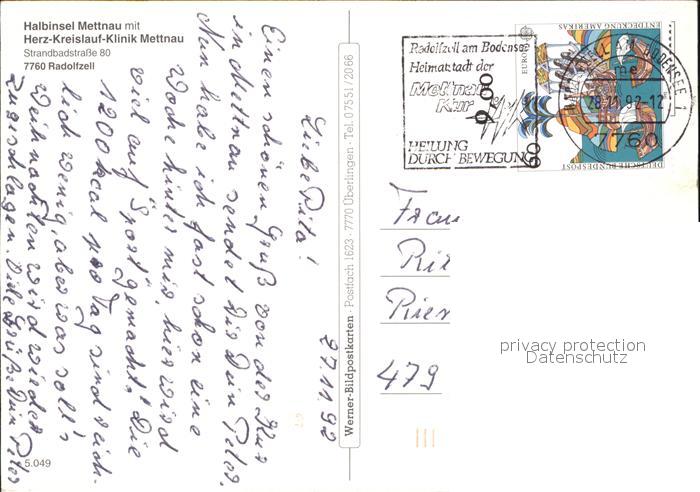 Halbinsel Mettnau mit
Herz-Kreislauf-Klinik Mettnau
Strandbadstraße 80
7760 Radolfzell
27.11.92
Liebe Rita!
Einen schönen Gruß von der Kur
in Mettnau sendet Dir Dein Peter.
Nun habe ich fast schon eine
Woche hinter mir, hier wird
viel auf Sport gemacht! Die
1200 kcal pro Tag sind reich-
lich wenig aber was soll's
Weihnachten wird wieder
zugeschlagen. Viele Grüße Dein Peter
5.049
Werner-Bildpostkarten · Postfach 1623 · 7770 Überlingen · Tel. 07551/2066
Radolfzell am Bodensee
Heimatstadt der
Mettnau
Kur
HEILUNG
DURCH BEWEGUNG
9,00
EUROPA
ENTDECKUNG AMERIKAS
60
DEUTSCHE BUNDESPOST
BODENSEE 1
me
28.11.92-12
7760
Frau
Rit
Rie
479
privacy protection
Datenschutz